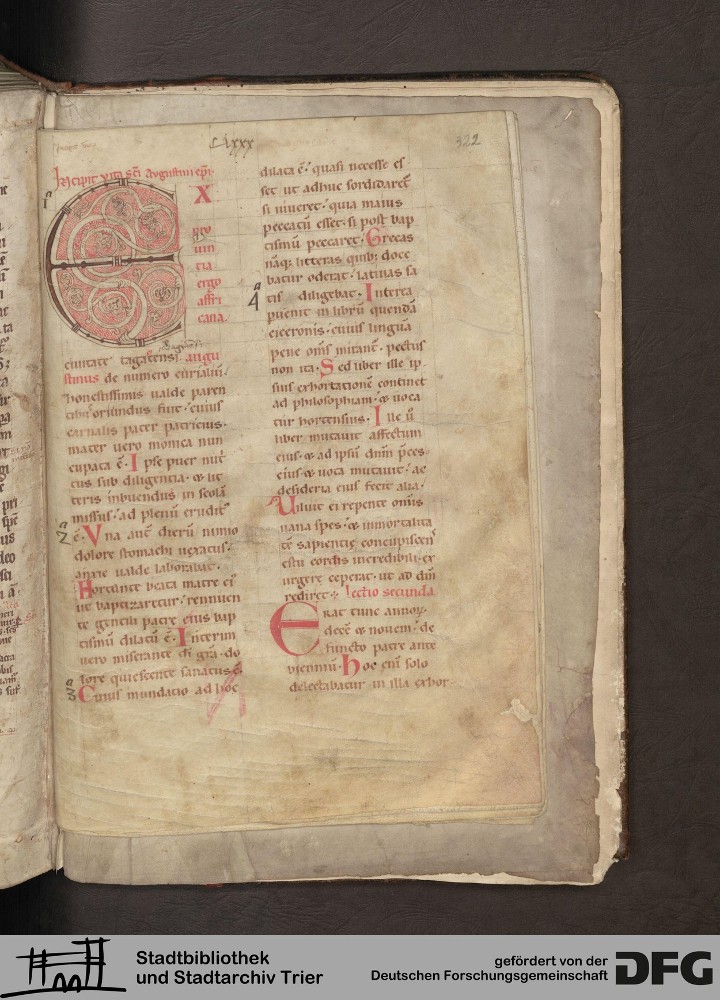 CLXXX
322
Incipit vita sci Augustini epi.
EX
pro
uin
cia
ergo
affri
cana.
ciuitate tagatensi augu
stinus de numero curialiu.
honestissimis ualde paren
tib; oriundus fuit. cuius
carnalis pater patricius.
mater uero monica nun
cupata ē. Ipse puer nut̄
tus sub diligentia. & lit
teris inbuendus in scolā
missus. ad plenū erudit
ē. Vna aut̄ dierū nimio
dolore stomachi uexatus.
anxie ualde laborabat.
Hortante beata matre ei
ut baptizaretur. rennuen
te gentili patre eius bap
tismū dilatū ē. Interim
uero miserante dī grā. do
lore quiescente sanatus ē.
Cuius mundatio ad hoc
dilata ē. quasi necesse es
set ut adhuc sordidaret̄
si uiueret. quia maius
peccatū esset. si post bap
tismū peccaret. Grecas
nāq; litteras quib; doce
batur oderat. latinas sa
tis diligebat. Interea
puenit in librū quendā
ciceronis. cuius linguā
pene oms mirant̄. pectus
non ita. Sed liber ille ip
sius exhortationē continet
ad philosophiam. & uoca
tur hortensius. Ille ū
liber mutauit affectum
eius. & ad ipsū dnm p̄ces
eius. & uota mutauit. ac
desideria eius fecit alia.
Viluit ei repente omīs
uana spes. & immortalita
tē sapientię concupiscen
estu cordis incredibili. ex
urgere ceperat. ut ad dm̄
rediret. lectio secunda
Erat tunc annoꝝ
decē & nouem. de
functo patre ante
biennium. Hoc enī solo
delectabatur in illa exhor-
1
2
3
4
Stadtbibliothek
und Stadtarchiv Trier
gefördert von der
Deutschen Forschungsgemeinschaft
DFG